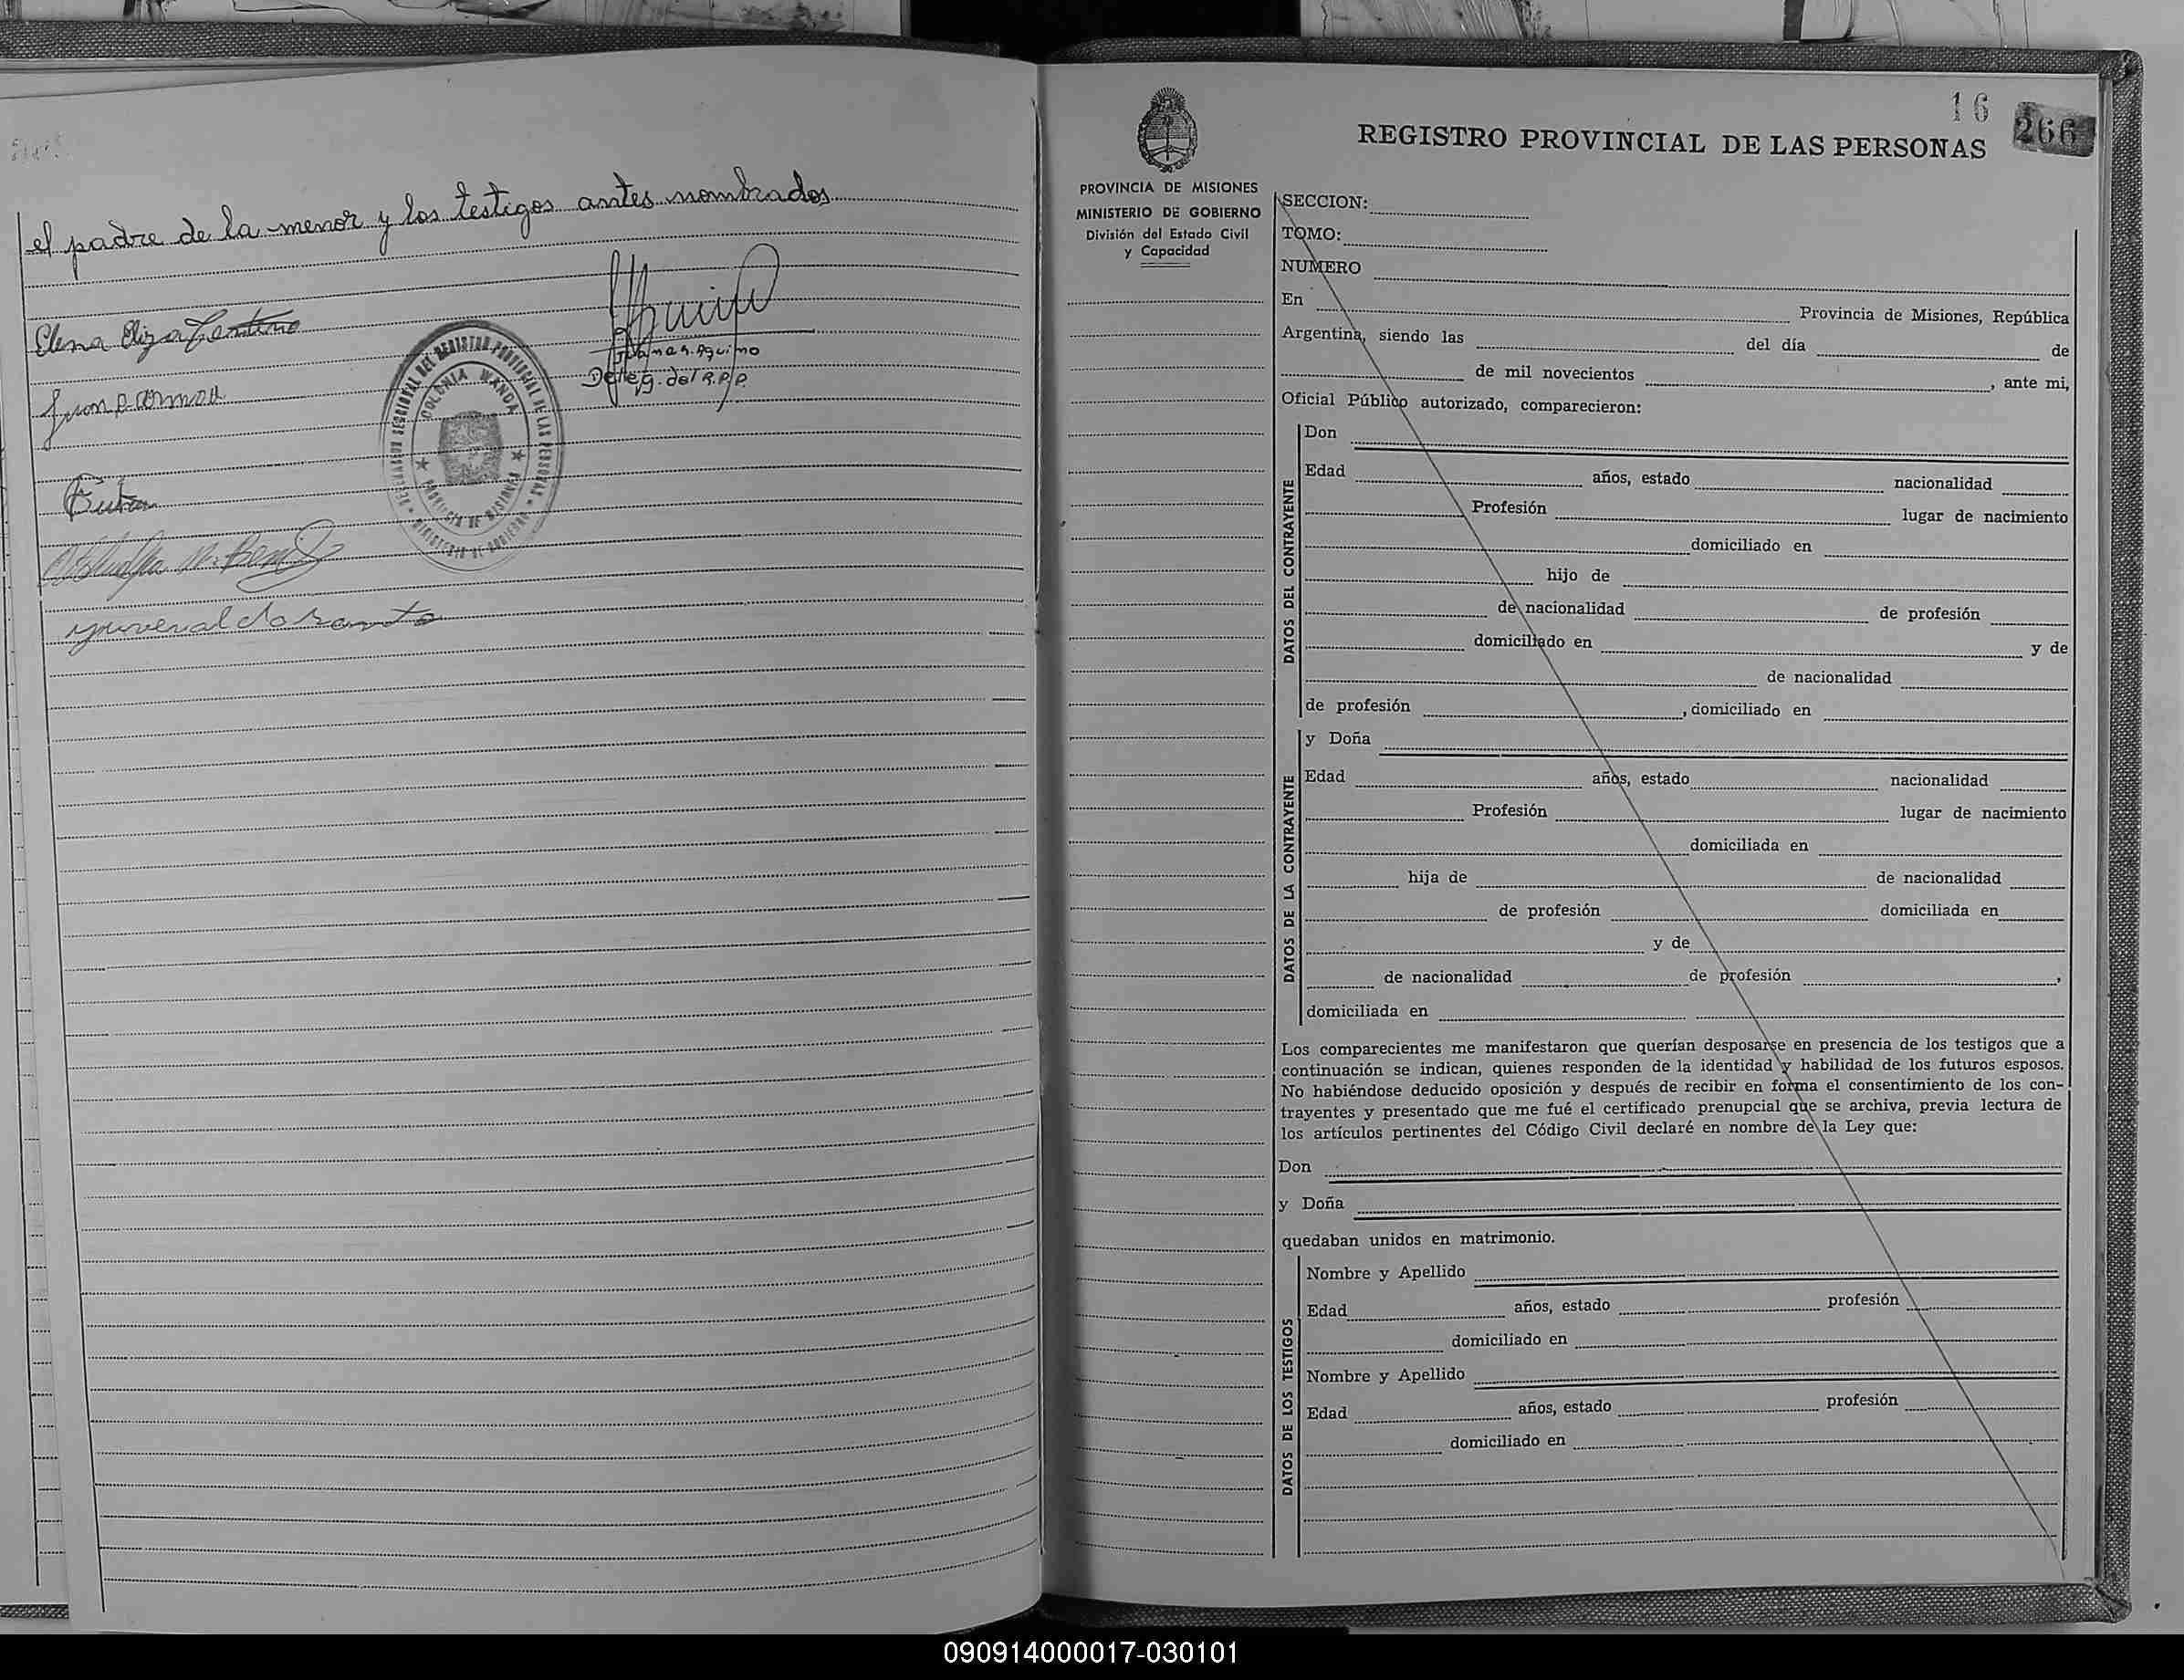 el padre de la menor y los testigos antes nombrados
Elena Eliza
Aquino
Deleg. del R.P.P.
DELEGACION SECCIONAL DEL REGISTRO PROVINCIAL DE LAS PERSONAS
MINISTERIO DE GOBIERNO
COLONIA WANDA
PROVINCIA DE MISIONES
16
266
REGISTRO PROVINCIAL DE LAS PERSONAS
PROVINCIA DE MISIONES
MINISTERIO DE GOBIERNO
División del Estado Civil
y Capacidad
SECCION:
TOMO:
NUMERO
En Provincia de Misiones, República
Argentina, siendo las del día de
de mil novecientos , ante mi,
Oficial Público autorizado, comparecieron:
DATOS DEL CONTRAYENTE
Don
Edad años, estado nacionalidad
Profesión lugar de nacimiento
domiciliado en
hijo de
de nacionalidad de profesión
domiciliado en y de
de nacionalidad
de profesión , domiciliado en
DATOS DE LA CONTRAYENTE
y Doña
Edad años, estado nacionalidad
Profesión lugar de nacimiento
domiciliada en
hija de de nacionalidad
de profesión domiciliada en
y de
de nacionalidad de profesión ,
domiciliada en
Los comparecientes me manifestaron que querían desposarse en presencia de los testigos que a
continuación se indican, quienes responden de la identidad y habilidad de los futuros esposos.
No habiéndose deducido oposición y después de recibir en forma el consentimiento de los con-
trayentes y presentado que me fué el certificado prenupcial que se archiva, previa lectura de
los artículos pertinentes del Código Civil declaré en nombre de la Ley que:
Don
y Doña
quedaban unidos en matrimonio.
DATOS DE LOS TESTIGOS
Nombre y Apellido
Edad años, estado profesión
domiciliado en
Nombre y Apellido
Edad años, estado profesión
domiciliado en
090914000017-030101